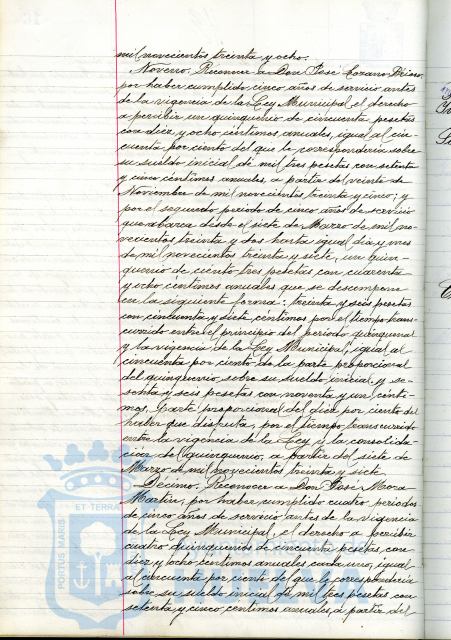 mil novecientos treinta y ocho.
Noveno. Reconocer a Don José Lozano
por haber cumplido cinco años de servicio antes
de la vigencia de la Ley Municipal el derecho
a percibir un quinquenio de cincuenta pesetas
con diez y ocho céntimos anuales, igual al cin-
cuenta por ciento del que le correspondería sobre
su sueldo inicial de mil tres pesetas con setenta
y cinco céntimos anuales, a partir del veinte de
Noviembre de mil novecientos treinta y cinco; y
por el segundo periodo de cinco años de servicio
que abarca desde el siete de Marzo de mil no-
vecientos treinta y dos hasta igual dia y mes
de mil novecientos treinta y siete, un quin-
quenio de ciento tres pesetas con cuarenta
y ocho céntimos anuales que se descompone
en la siguiente forma: treinta y seis pesetas
con cincuenta y siete céntimos por el tiempo trans-
currido entre el principio del periodo quinquenal
y la vigencia de la Ley Municipal, igual al
cincuenta por ciento de la parte proporcional
del quinquenio sobre su sueldo inicial y se-
senta y seis pesetas con noventa y un cénti-
mos, parte proporcional del diez por ciento del
haber que disfruta, por el tiempo transcurrido
entre la vigencia de la Ley y la consolida-
cion del quinquenio, a partir del siete de
Marzo de mil novecientos treinta y siete.
Décimo. Reconocer a Don José Mora
Martín, por haber cumplido cuatro periodos
de cinco años de servicio antes de la vigencia
de la Ley Municipal, el derecho a percibir
cuatro quinquenios de cincuenta pesetas con
diez y ocho centimos anuales cada uno, igual
al cincuenta por ciento del que le correspondería
sobre su sueldo inicial de mil tres pesetas con
setenta y cinco centimos anuales, a partir del
ET TERRA
PORTUS MARIS